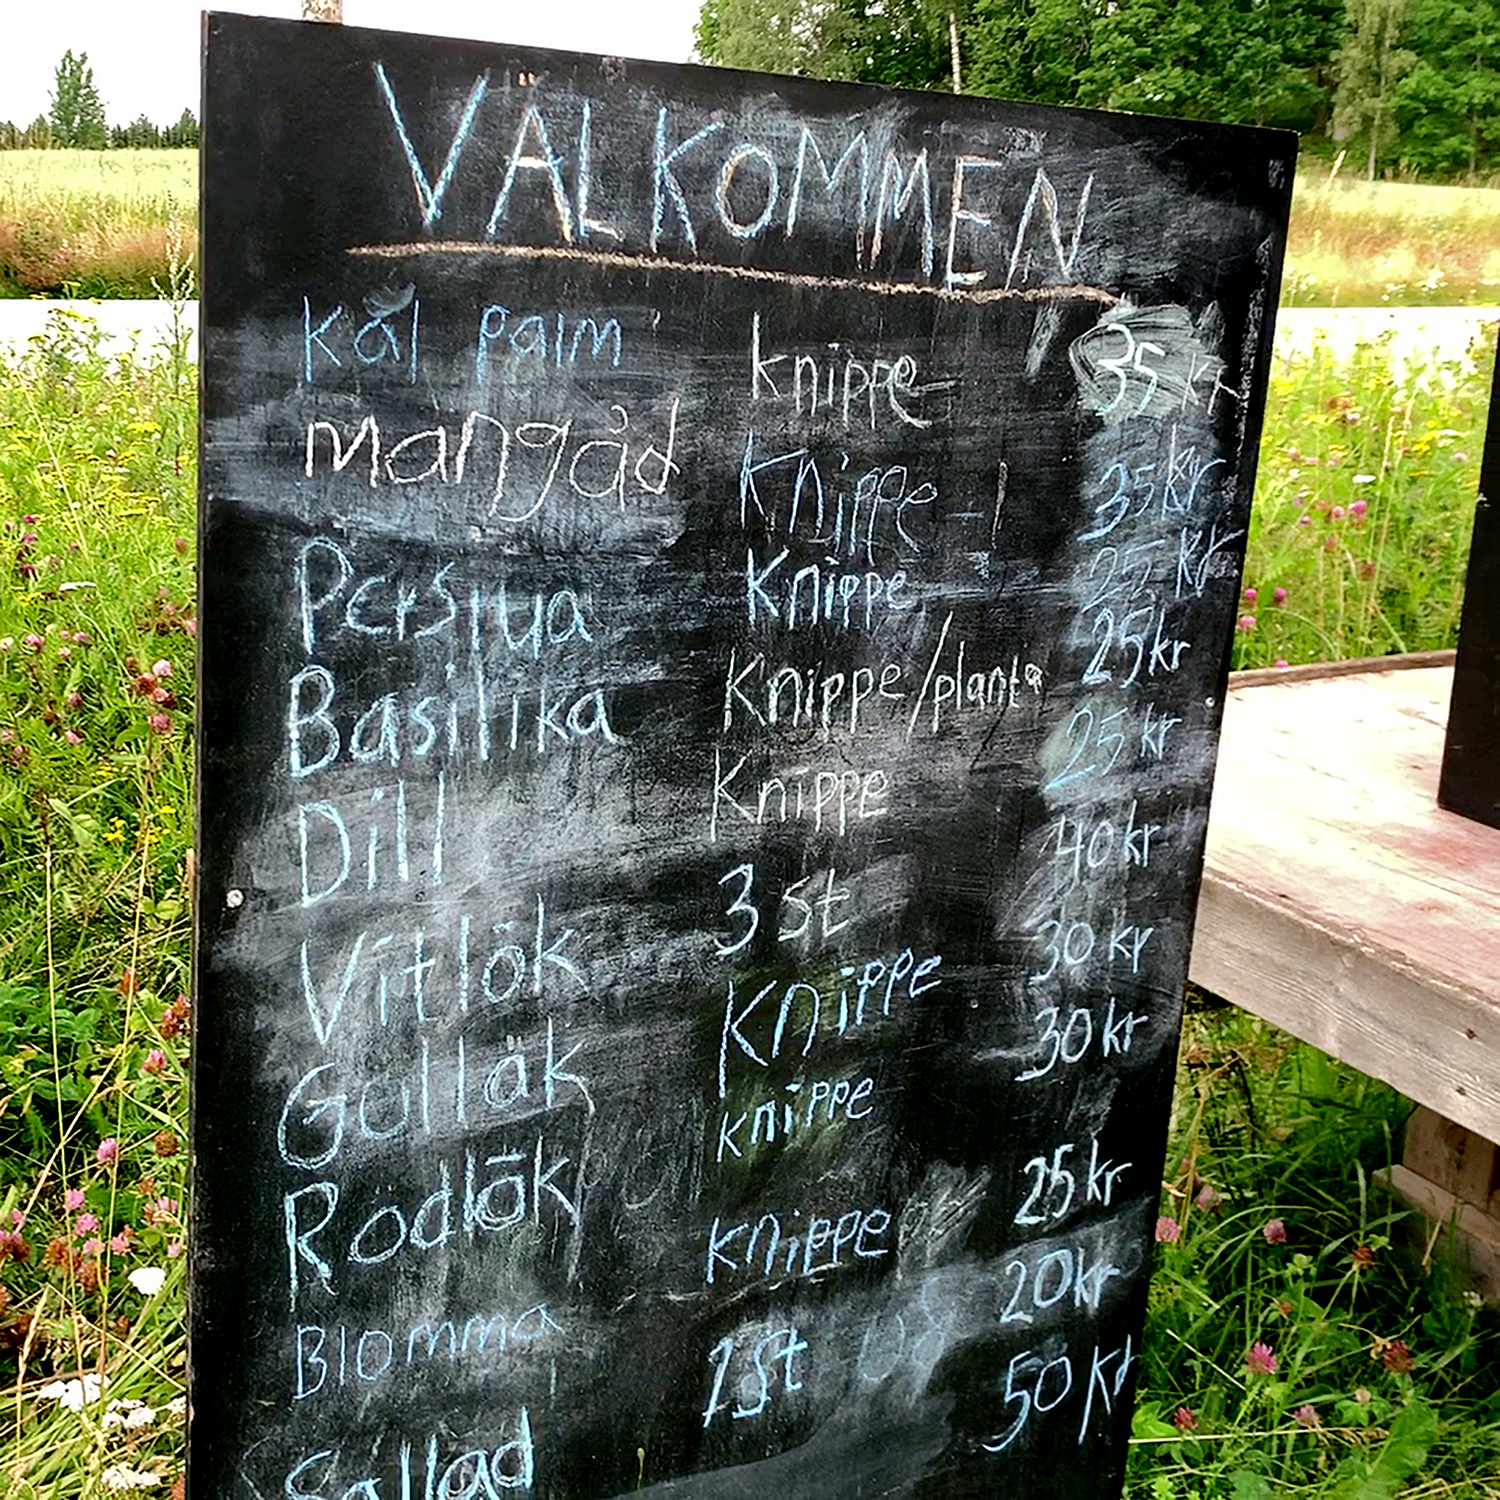 VÄLKOMMEN
Kål palm knippe 35 kr
mangåd Knippe 35kr
Persilja Knippe 25 kr
Basilika Knippe/planta 25kr
Dill Knippe 25 kr
Vitlök 3 st 40kr
Gullök Knippe 30 kr
Rödlök knippe 30kr
Blomma knippe 25kr
Sallad 1st 20kr
50 kr